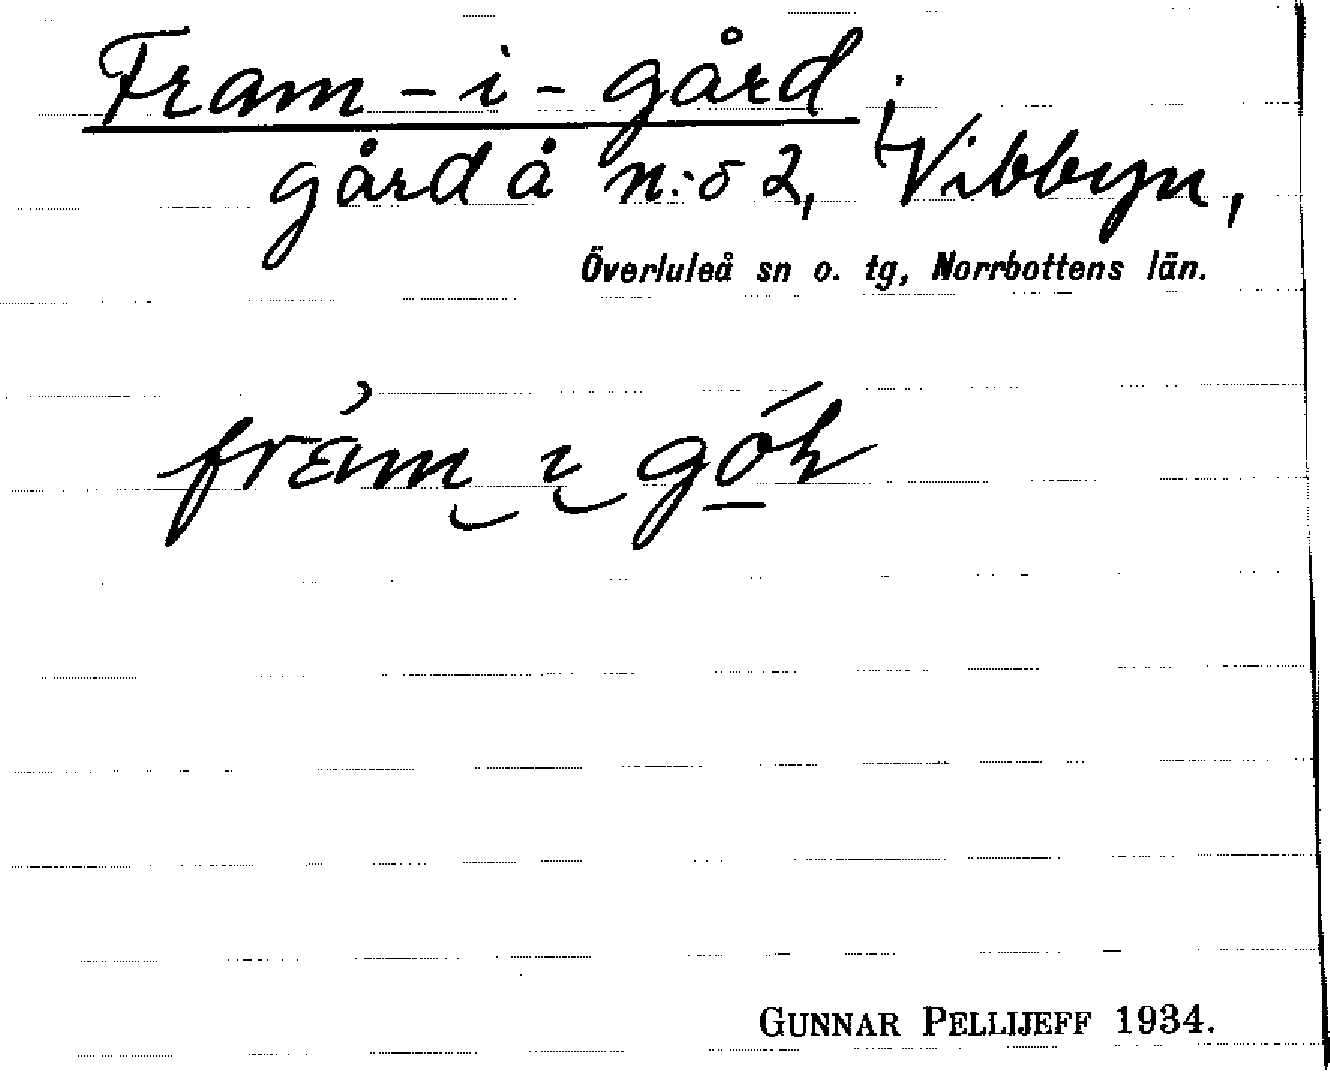 Fram-i-gård;
gård å n:o 2, Vibbyn,
Överluleå sn o. tg, Norrbottens län.
GUNNAR PELLIJEFF 1934.